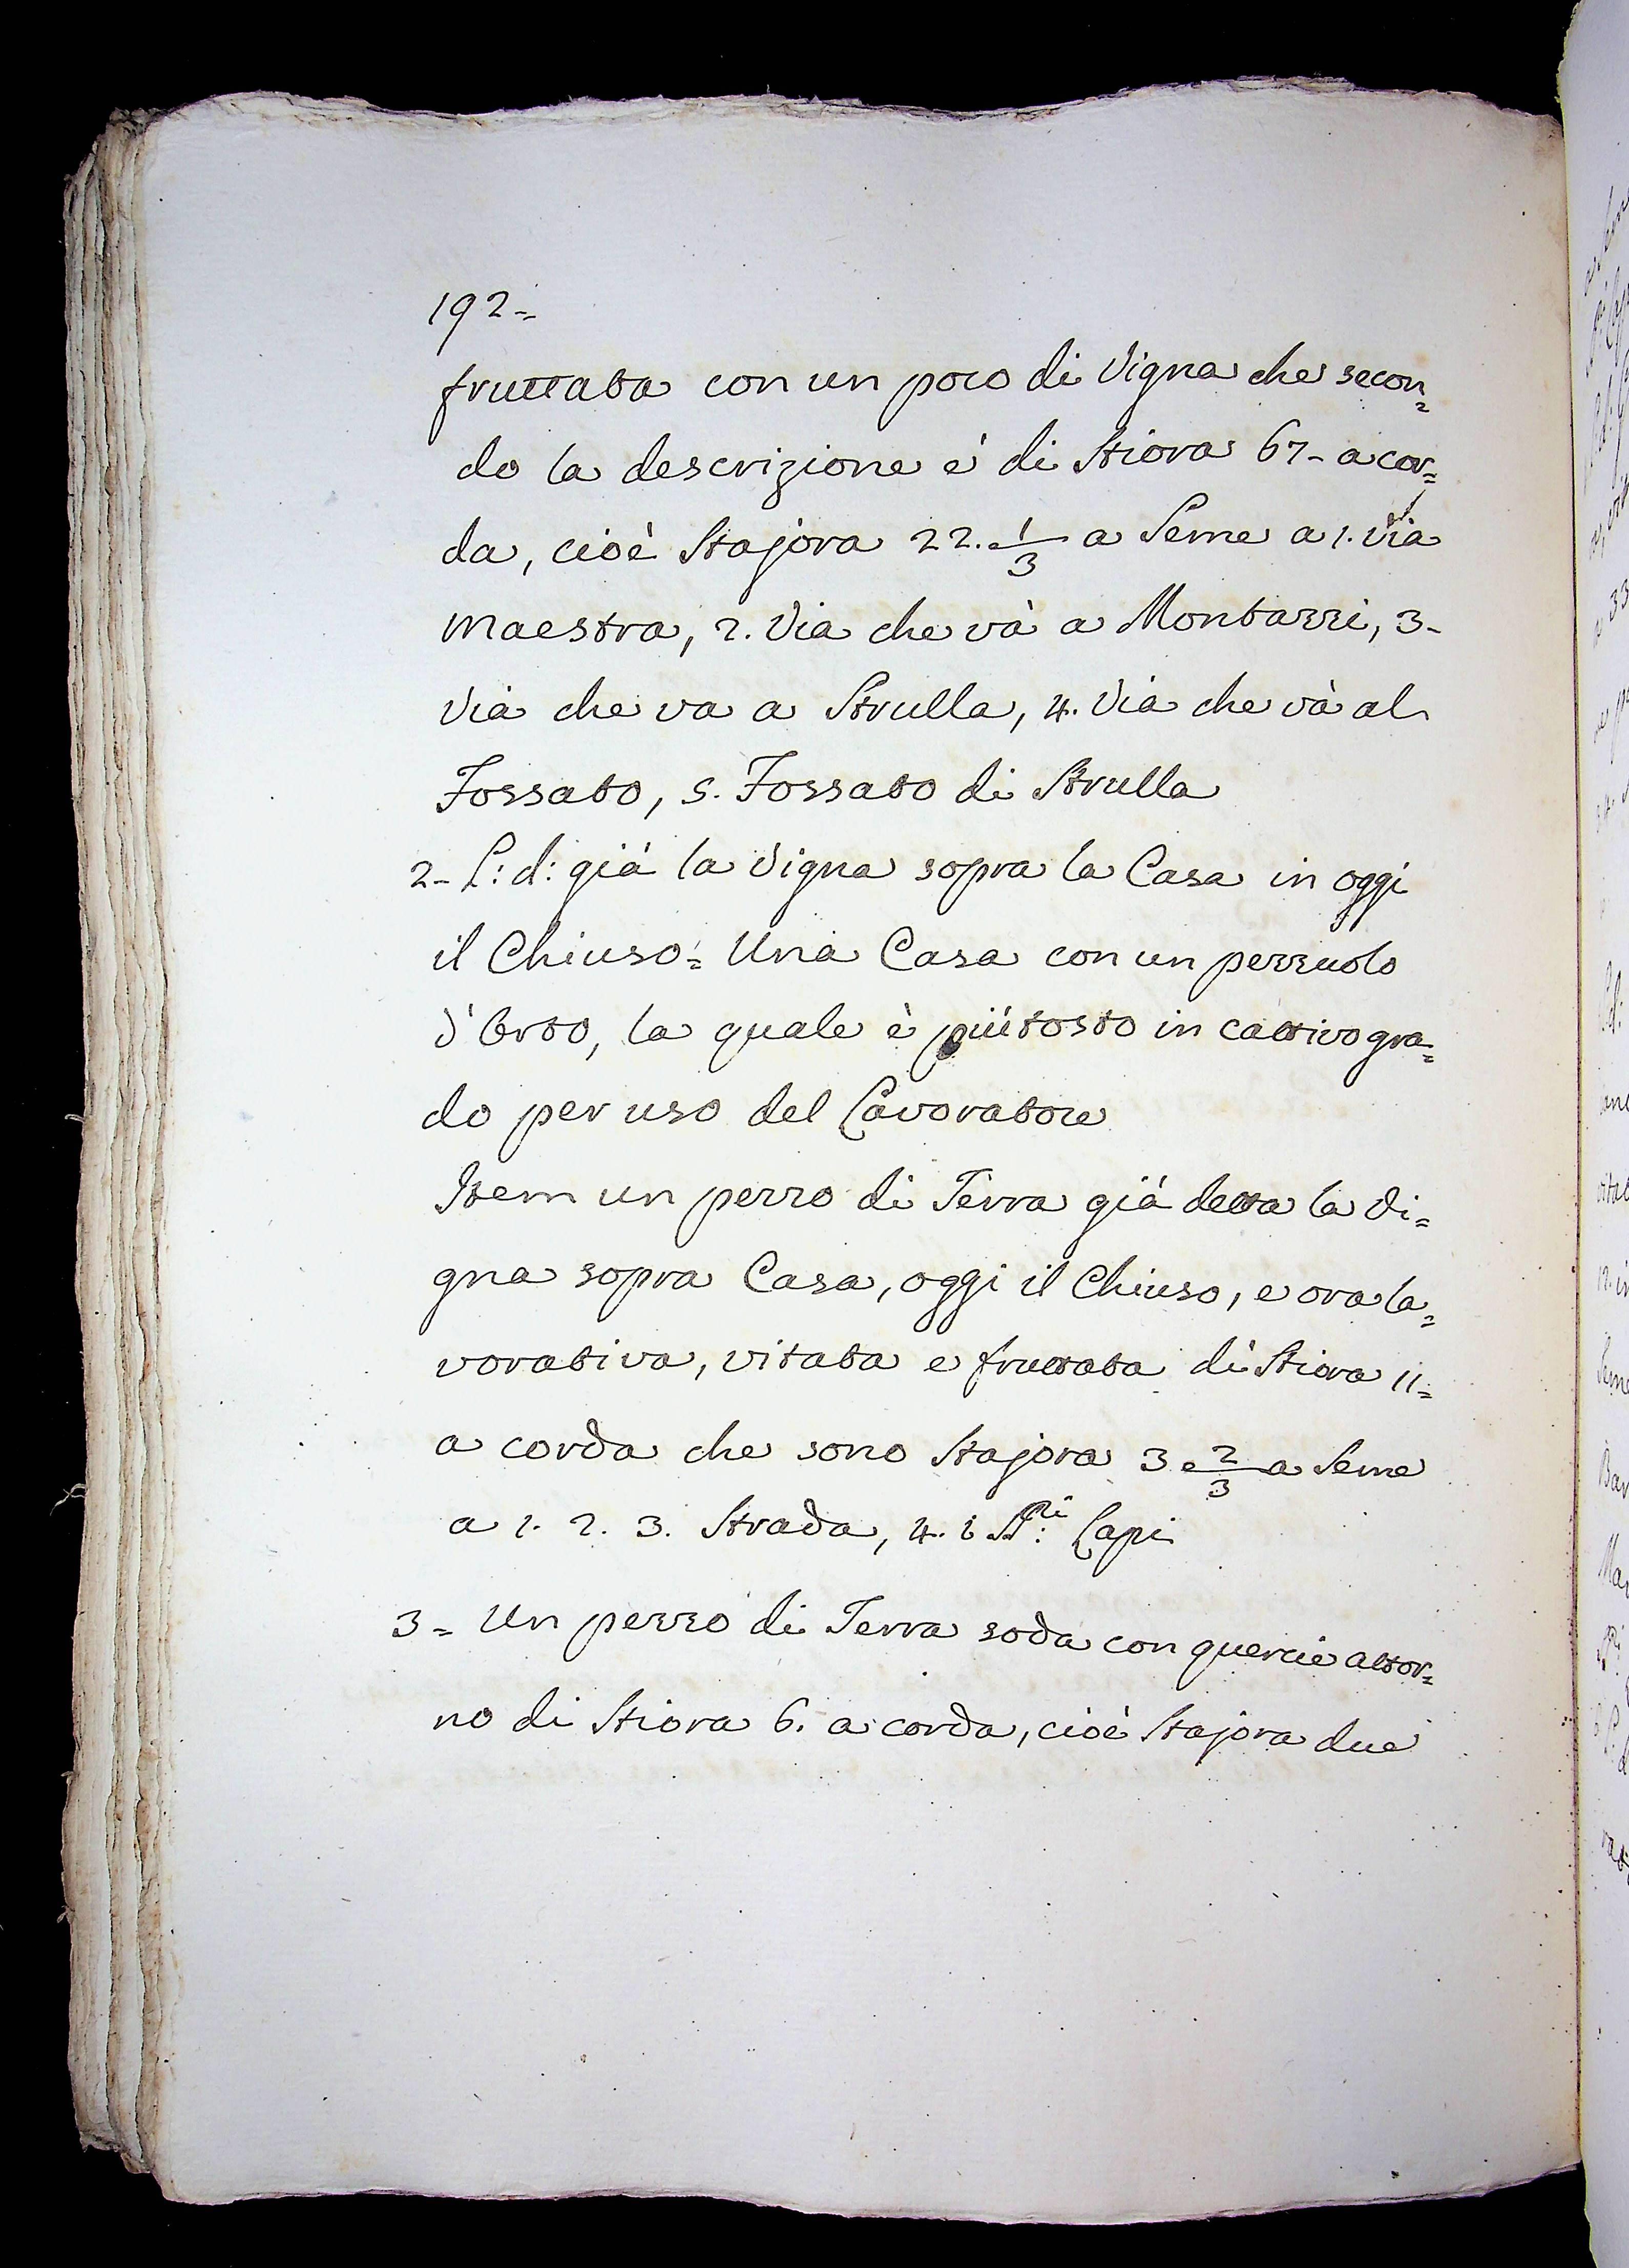 192=
fruttata con un poco di Vigna che secon=
do la descrizione è di Stiora 67- a cor=
da, cioè Stajora 22. 1/3 a Seme a 1. Via
Maestra, 2. Via che và a Montazzi, 3-
Via che va a Strulla, 4. Via che và al
Fossato, 5. Fossato di Strulla
2- L: d: già la Vigna sopra la Casa in oggi
il Chiuso= Una Casa con un pezzuolo
d'Orto, la quale è piùtosto in cattivo gra=
do per uso del Lavoratore
Item un pezzo di Terra già detta la Vi=
gna sopra Casa, oggi il Chiuso, e ora la=
vorativa, vitata e fruttata di Stiora 11=
a corda che sono Stajora 3 e 2/3 a Seme
a 1. 2. 3. Strada, 4. i Lapi
3= Un pezzo di Terra soda con quercie attor=
no di Stiora 6. a corda, cioè Stajora due